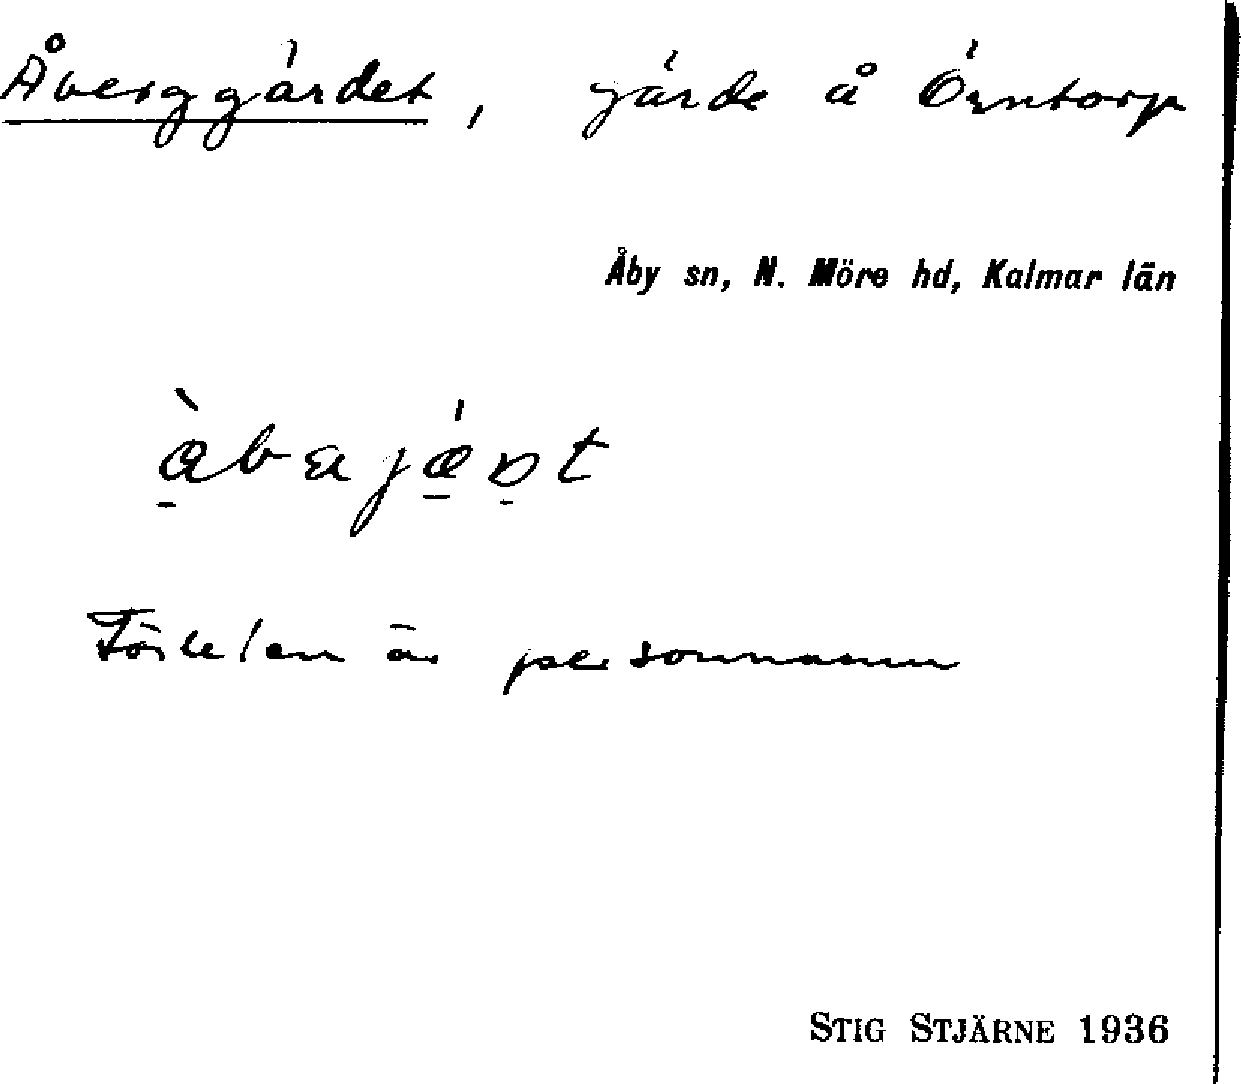 Åverggärdet, gärde å Örntorp
Åby sn, N. Möre hd, Kalmar län
Förleden är personnamn
STIG STJÄRNE 1936